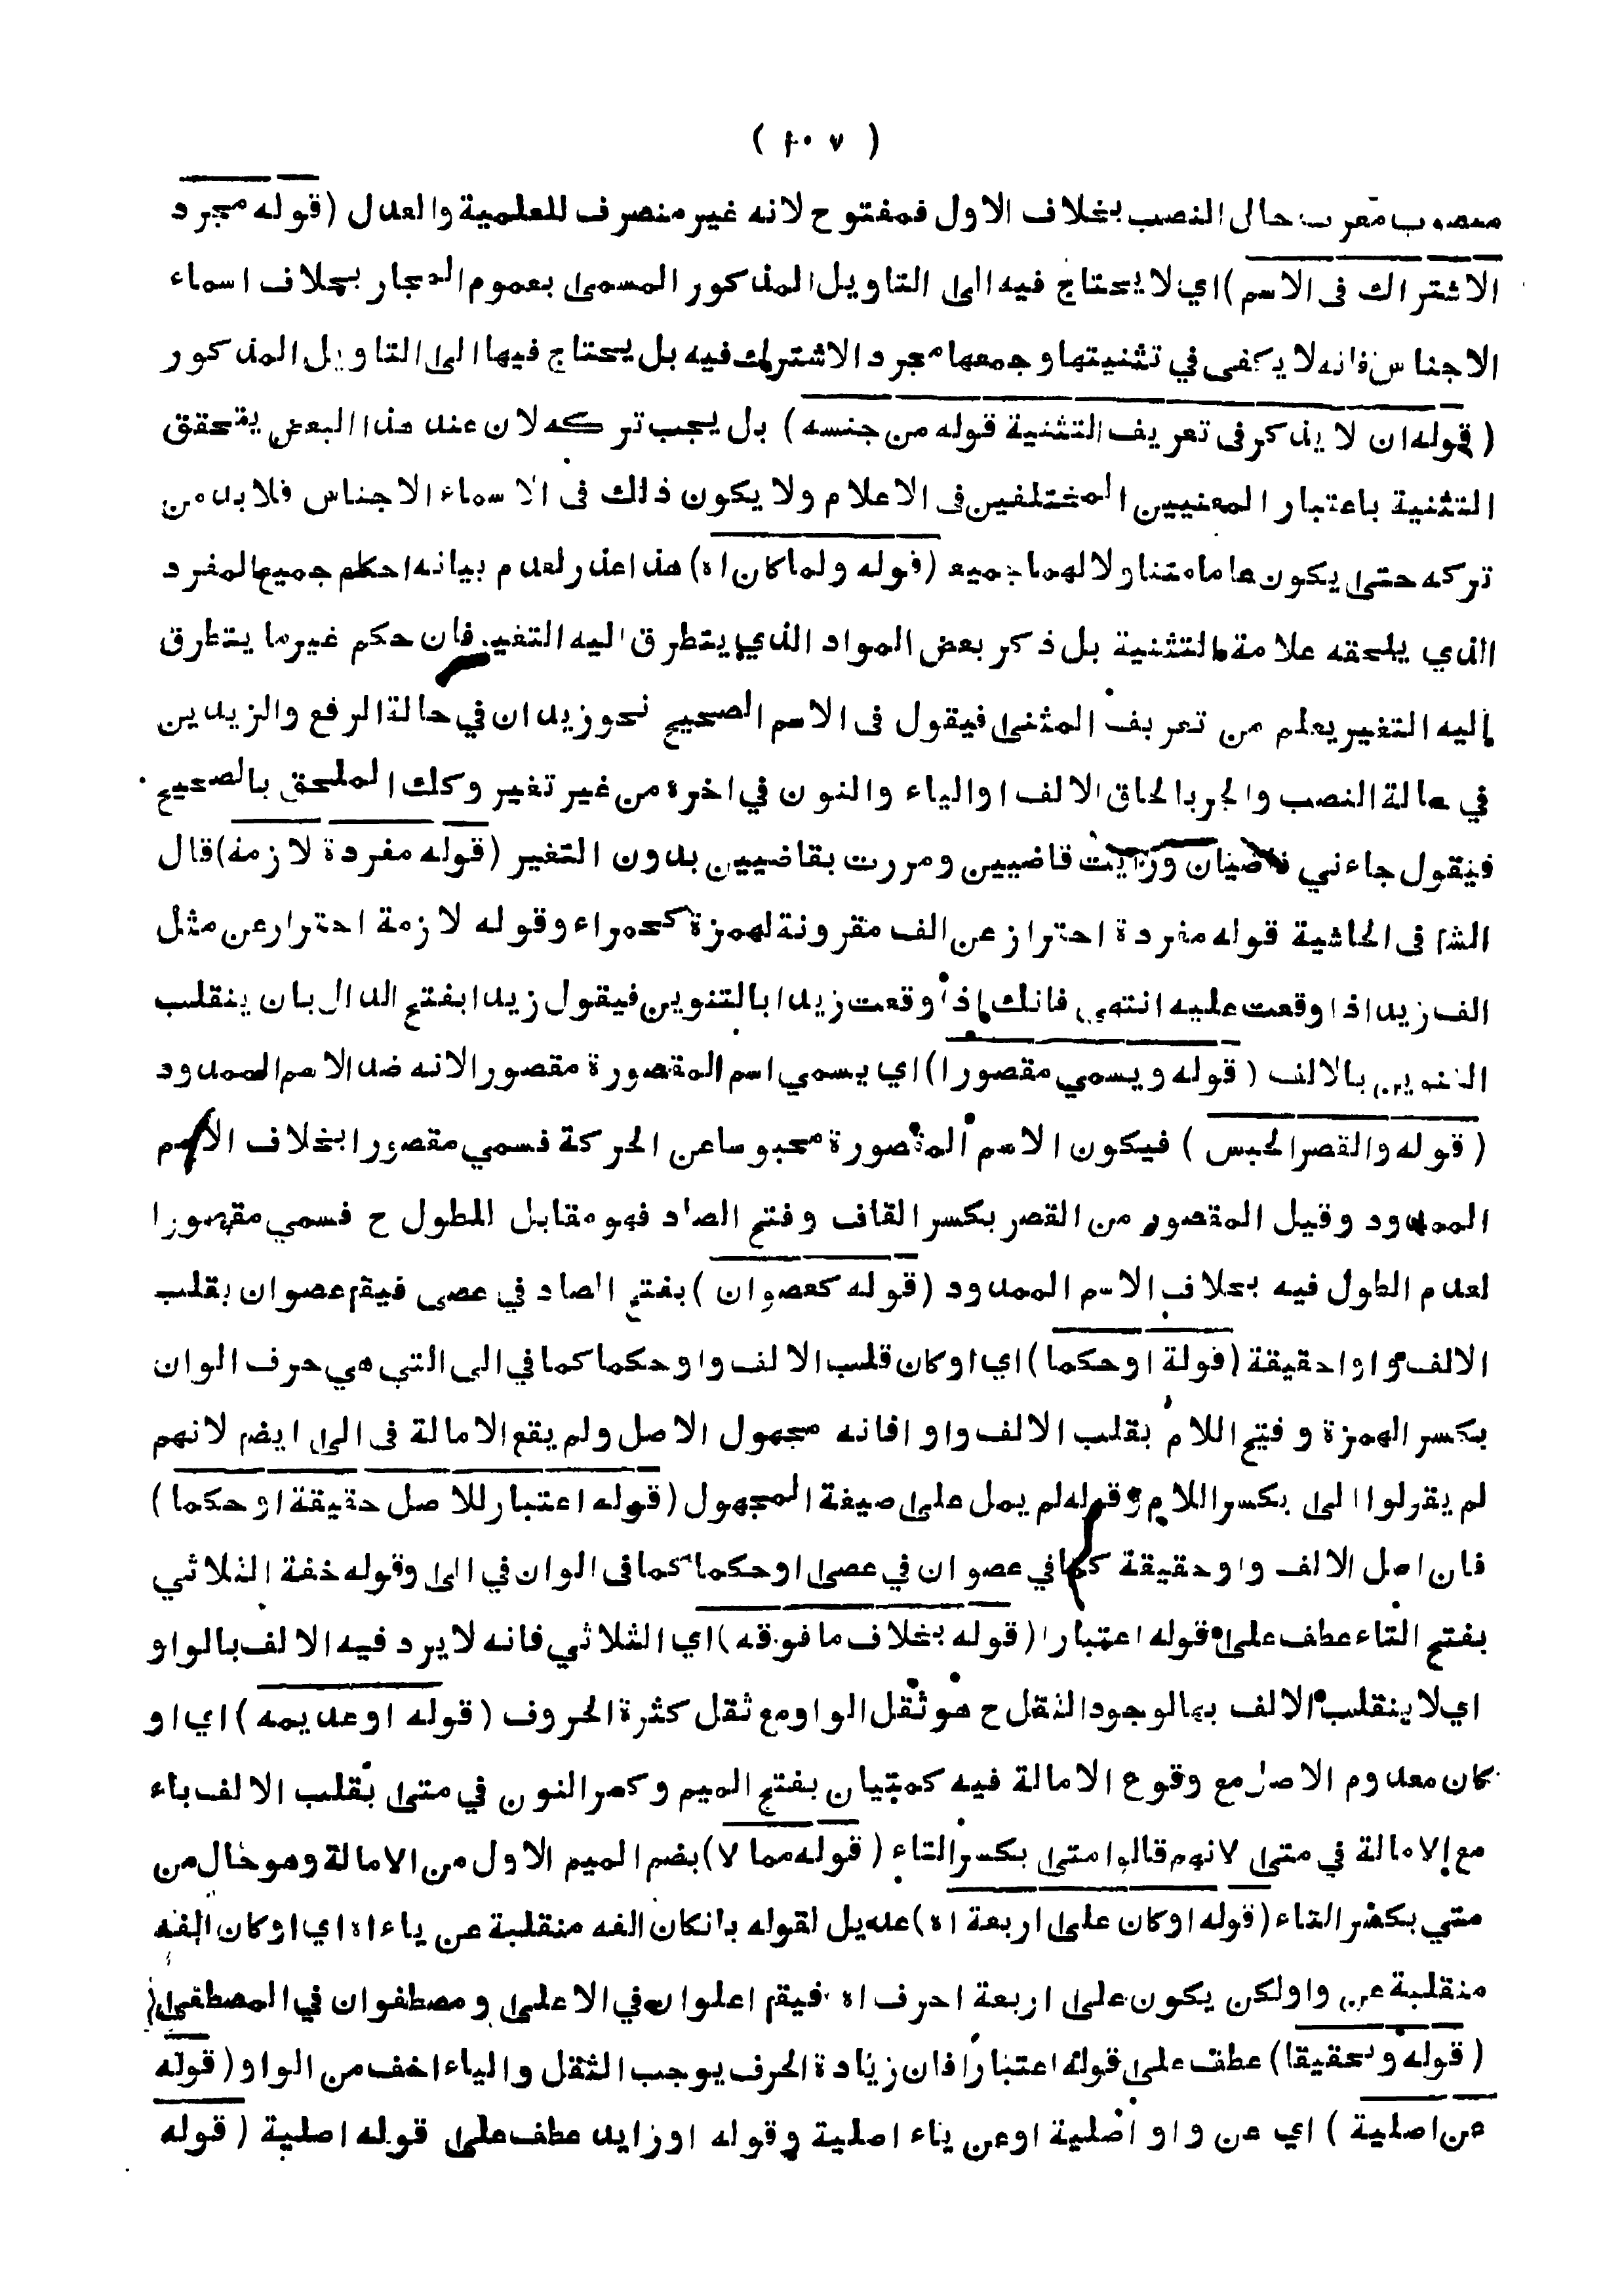 ( ١٠٧ )
منصوب معرب حال النصب بخلاف الاول فمفتوح لانه غير منصرف للعلمية والعدل (قوله مجرد
الاشتراك فى الاسم) اي لا يحتاج فيه الى التاويل المذكور المسمى بعموم المجار بخلاف اسماء
الاجناس فانه لا يكفى في تثنيتها وجمعها مجرد الاشتراك فيه بل يحتاج فيها الى التاويل المذكور
(قوله ان لا يذكر فى تعريف التثنية قوله من جنسه) بل يجب تركه لان عند هذا البعض يتحقق
التثنية باعتبار المعنيين المختلفين فى الاعلام ولا يكون ذلك فى الاسماء الاجناس فلا بد من
تركه حتى يكون عاما متناولا لهما جميعه (قوله ولما كان اه) هذا عذر لعدم بيانه احكام جميع المفرد
الذي يلحقه علامة التثنية بل ذكر بعض المواد الذي يتطرق اليه التغير فان حكم غير ما يتطرق
اليه التغير يعلم من تعريف المثنى فيقول فى الاسم الصحيح نحو زيدان في حالة الرفع والزيدين
في حالة النصب والجر بالحاق الالف او الياء والنون في اخره من غير تغير وكلك الملحق بالصحيح
فيقول جاءني قاضيان ورايت قاضيين ومررت بقاضيين بدون التغير (قوله مفردة لازمة) قال
الشا فى الحاشية قوله مفردة احتراز عن الف مقرونة لهمزة كحمراء وقوله لازمة احترار عن مثل
الف زيدا اذا وقعت عليه انتهى فانك اذا وقعت زيدا بالتنوين فيقول زيدا بفتح الدال بان ينقلب
التنوين بالالف (قوله ويسمي مقصورا) اي يسمي اسم المقصورة مقصورا لانه ضد الاسم الممدود
(قوله والقصر الحبس) فيكون الاسم المقصورة محبوسا عن الحركة فسمي مقصورا بخلاف الاسم
الممدود وقيل المقصور من القصر بكسر القاف وفتح الصاد فهو مقابل المطول ح فسمي مقصورا
لعدم الطول فيه بخلاف الاسم الممدود (قوله كعصوان) بفتح الصاد في عصى فيقم عصوان بقلب
الالف واوا حقيقة (قولة او حكما) اي او كان قلب الالف واو حكما كما في الى التي هي حرف الوان
بكسر الهمزة وفتح اللام بقلب الالف واوا فانه مجهول الاصل ولم يقع الامالة فى الى ايضم لانهم
لم يقولوا الى بكسر اللام وقوله لم يمل على صيغة المجهول (قوله اعتبار للاصل حقيقة او حكما)
فان اصل الالف واو حقيقة كما في عصوان في عصى او حكما كما فى الوان في الى وقوله خفة الثلاثي
بفتح التاء عطف على قوله اعتبارا (قوله بخلاف ما فوقه) اي الثلاثي فانه لا يرد فيه الالف بالواو
اي لا ينقلب الالف بها لوجود الثقل ح هو ثقل الواو مع ثقل كثرة الحروف (قوله او عديمه) اي او
كان معدوم الاصل مع وقوع الامالة فيه كمتيان بفتح الميم وكسر النون في متى بقلب الالف ياء
مع الامالة في متى لانهم قالوا متى بكسر التاء (قوله مما لا) بضم الميم الاول من الامالة وهو حال من
متي بكسر التاء (قوله او كان على اربعة اه) عديل لقوله بانكان الفه منقلبة عن ياء اه اي او كان الفه
منقلبة عن واو لكن يكون على اربعة احرف اه فيقم اعلوان في الاعلى ومصطفوان في المصطفى
(قوله وتحقيقا) عطف على قوله اعتبارا فان زيادة الحرف يوجب الثقل والياء اخف من الواو (قوله
عن اصلية) اي عن واو اصلية او عن ياء اصلية وقوله او زايد عطف على قوله اصلية (قوله